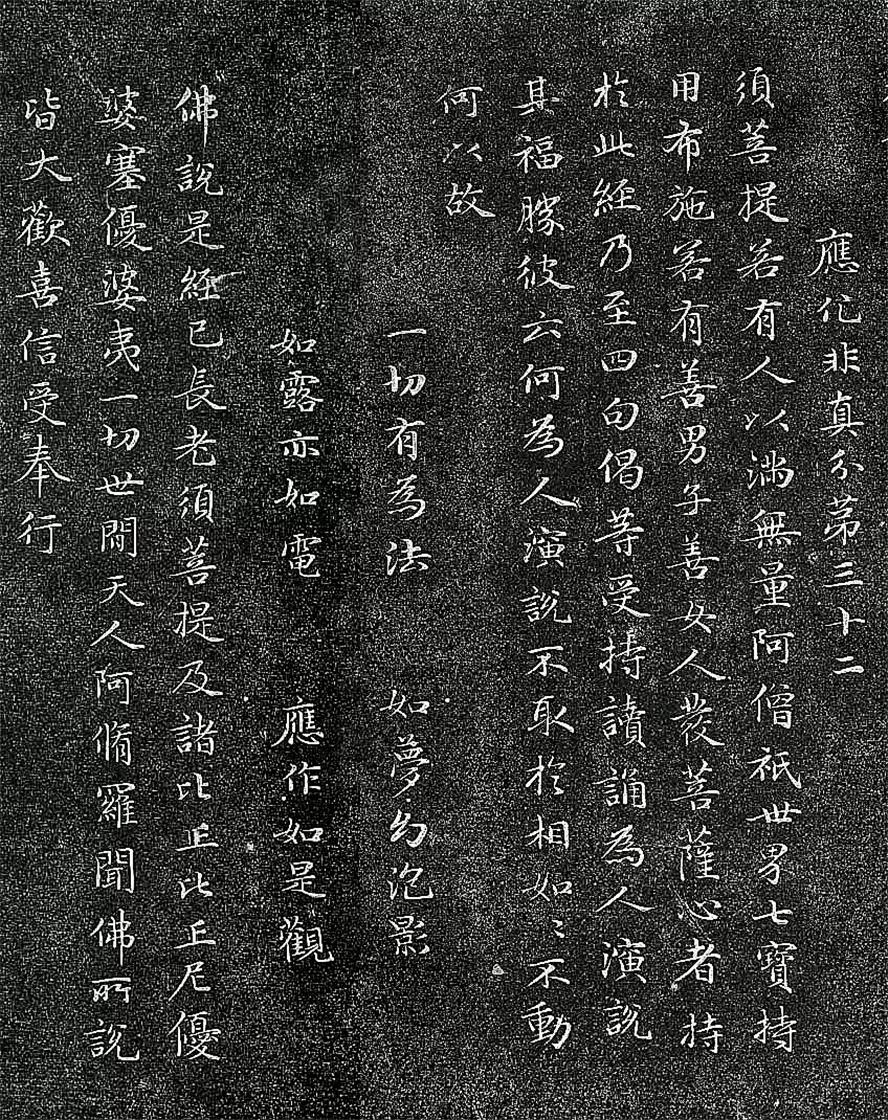 應化非真分第三十二
須菩提若有人以滿無量阿僧祇世界七寶持
用布施若有善男子善女人發菩薩心者持
於此經乃至四句偈等受持讀誦為人演說
其福勝彼云何為人演說不取於相如〻不動
何以故
一切有為法 如夢幻泡影
如露亦如電 應作如是觀
佛說是經已長老須菩提及諸比丘比丘尼優
婆塞優婆夷一切世間天人阿脩羅聞佛所說
皆大歡喜信受奉行